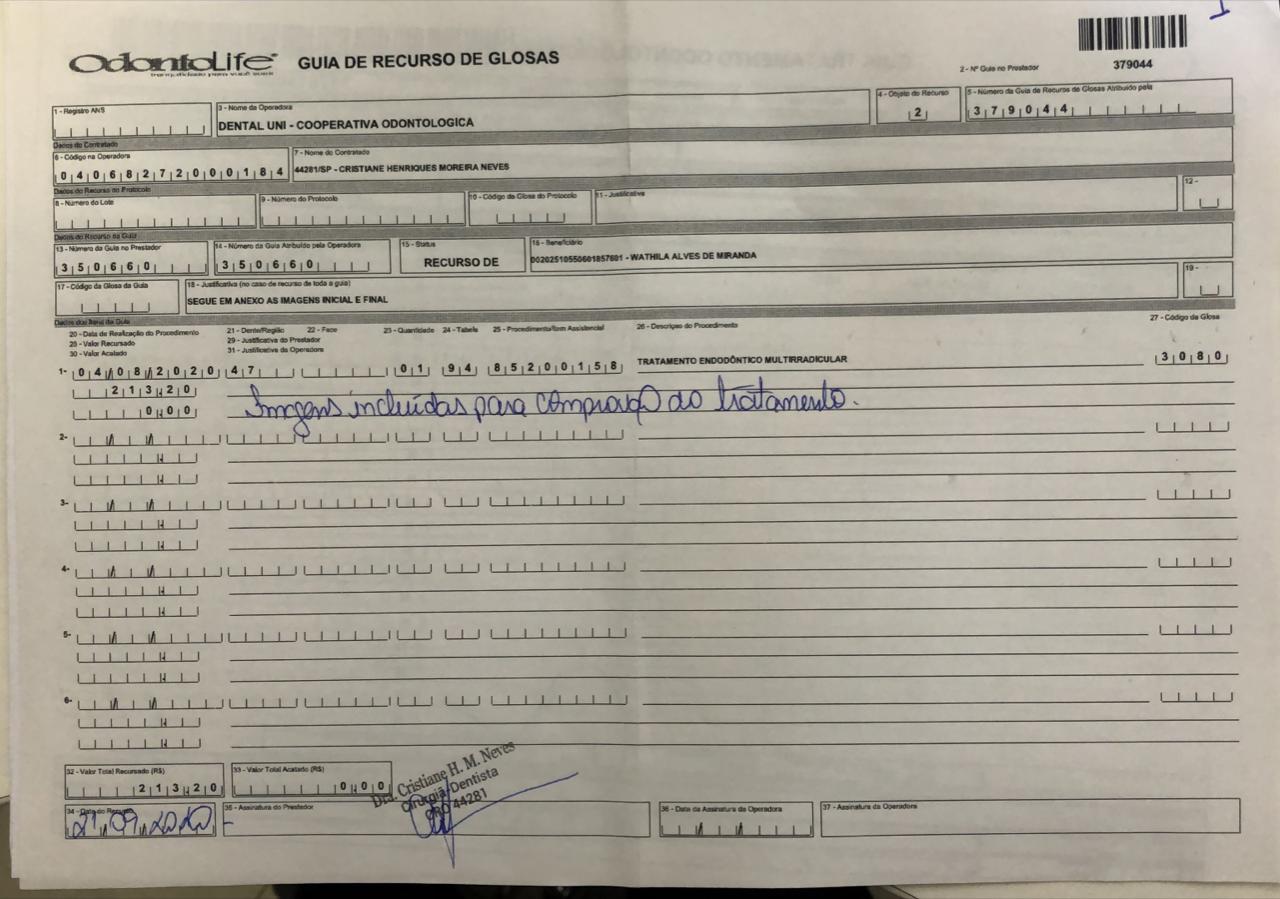 OdontoLife
tranquilidade para você sorrir
GUIA DE RECURSO DE GLOSAS
2 - Nº Guia no Prestador
379044
1 - Registro ANS
3 - Nome da Operadora
DENTAL UNI - COOPERATIVA ODONTOLOGICA
4 - Objeto do Recurso
2
5 - Número da Guia de Recurso de Glosas Atribuído pela
379044
Dados do Contratado
6 - Código na Operadora
04068272000184
7 - Nome do Contratado
44281/SP - CRISTIANE HENRIQUES MOREIRA NEVES
Dados do Recurso do Protocolo
8 - Número do Lote
9 - Número do Protocolo
10 - Código da Glosa do Protocolo
11 - Justificativa
12 -
Dados do Recurso da Guia
13 - Número da Guia no Prestador
350660
14 - Número da Guia Atribuído pela Operadora
350660
15 - Status
RECURSO DE
16 - Beneficiário
00202510550601857601 - WATHILA ALVES DE MIRANDA
17 - Código da Glosa da Guia
18 - Justificativa (no caso de recurso de toda a guia)
SEGUE EM ANEXO AS IMAGENS INICIAL E FINAL
19 -
Dados dos Itens da Guia
20 - Data de Realização do Procedimento
21 - Dente/Região
22 - Face
23 - Quantidade
24 - Tabela
25 - Procedimento/Item Assistencial
26 - Descrição do Procedimento
27 - Código da Glosa
28 - Valor Recursado
29 - Justificativa do Prestador
30 - Valor Acatado
31 - Justificativa da Operadora
1- 04/08/2020 47 01 94 85200158 TRATAMENTO ENDODÔNTICO MULTIRRADICULAR 3080
213,20
0,00
Imagens incluídas para comprovação do tratamento.
2-
3-
4-
5-
6-
32 - Valor Total Recursado (R$)
213,20
33 - Valor Total Acatado (R$)
0,00
Dra. Cristiane H. M. Neves
Cirurgiã Dentista
CRO 44281
34 - Data do Recurso
21/09/2020
35 - Assinatura do Prestador
36 - Data da Assinatura da Operadora
37 - Assinatura da Operadora